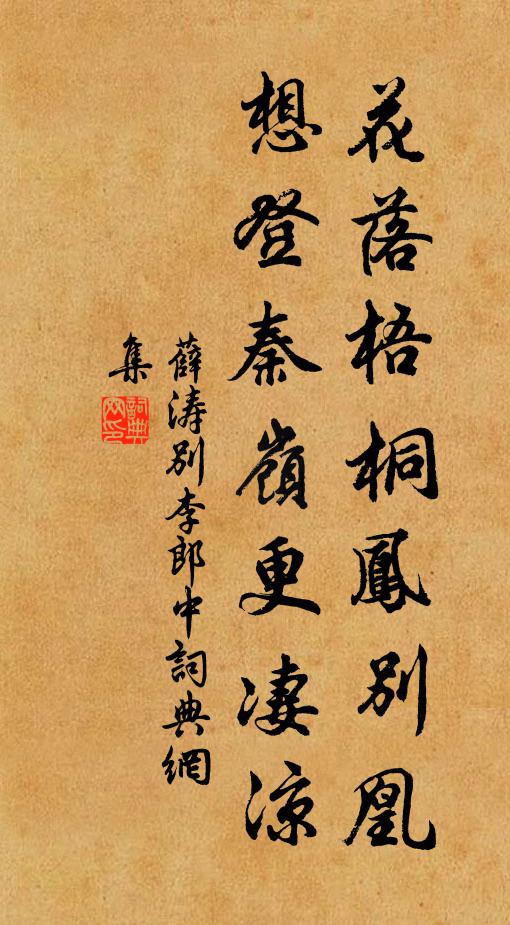 花落梧桐鳳別凰
想登秦嶺更淒涼
薛濤別李郎中詞典網
集
詞典
网印